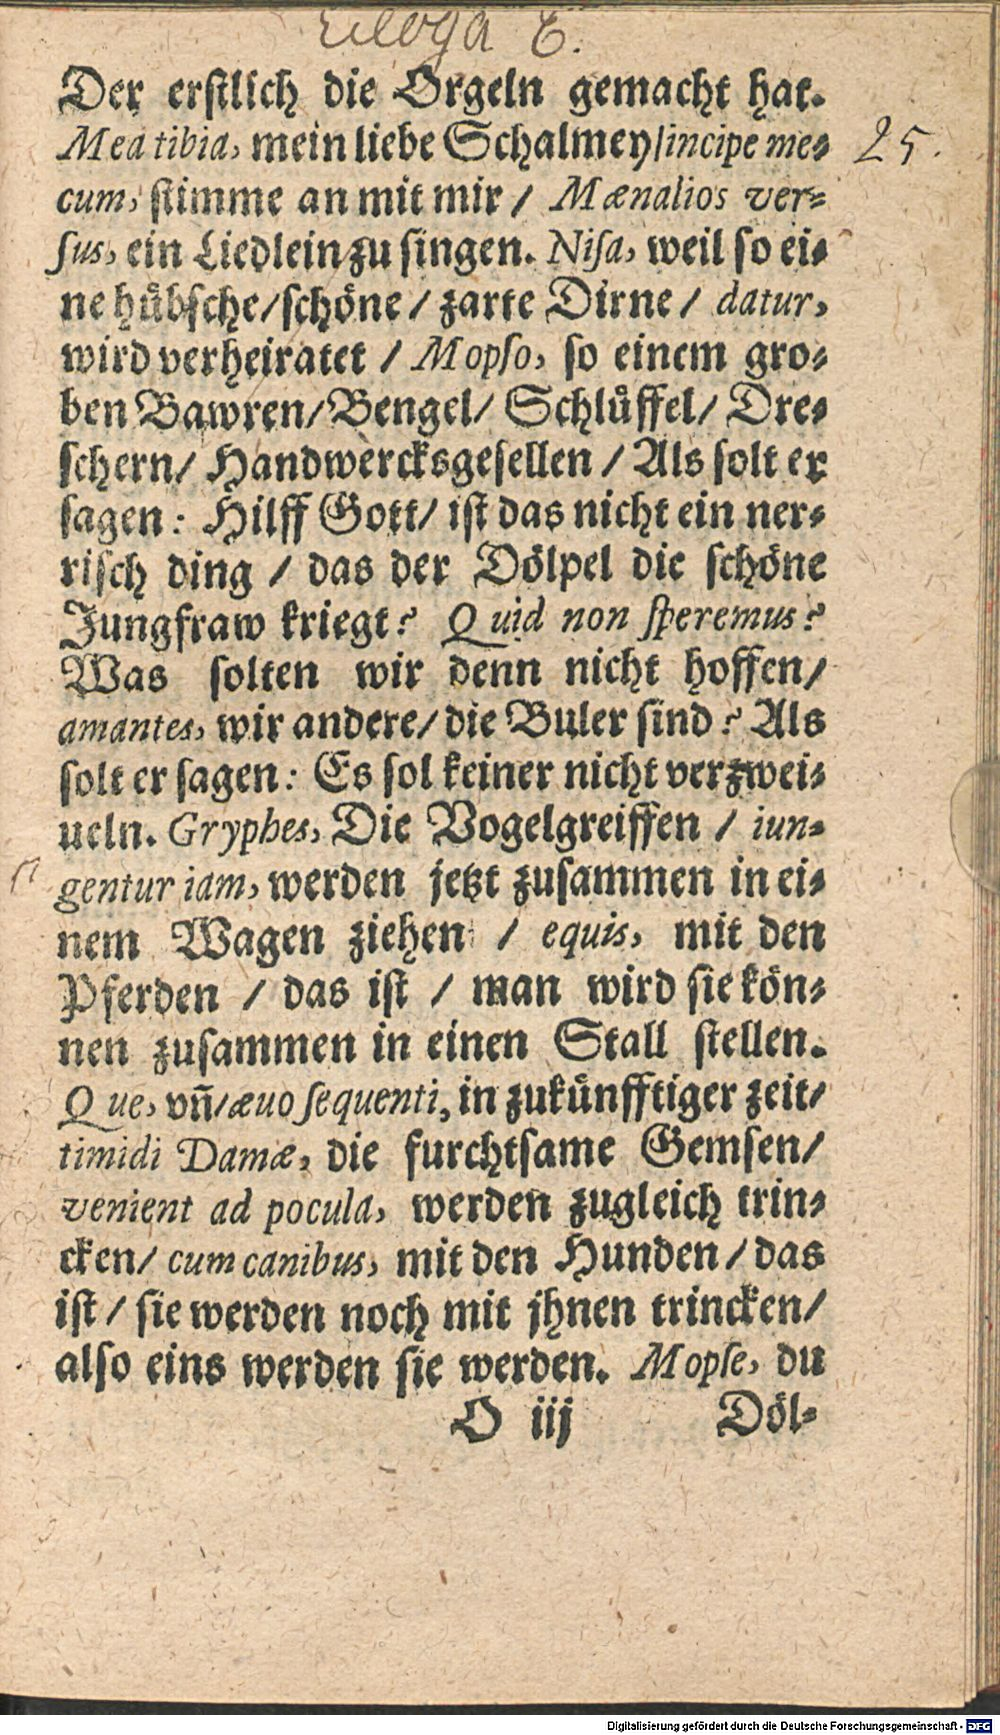 Ecloga 8.
Der erstlich die Orgeln gemacht hat.
Mea tibia, mein liebe Schalmey/incipe me-
25.
cum, stimme an mit mir / Mænalios ver-
sus, ein Liedlein zu singen. Nisa, weil so ei-
ne hůbsche/schöne/ zarte Dirne / datur,
wird verheiratet / Mopso, so einem gro-
ben Bawren/Bengel/ Schlůffel/ Dre-
schern/ Handwercksgesellen / Als solt er
sagen: Hilff Gott/ ist das nicht ein ner-
risch ding / das der Dölpel die schöne
Jungfraw kriegt? Quid non speremus?
Was solten wir denn nicht hoffen/
amantes, wir andere/die Buler sind? Als
solt er sagen: Es sol keiner nicht verzwei-
ueln. Gryphes, Die Vogelgreiffen / iun-
gentur iam, werden jetzt zusammen in ei-
nem Wagen ziehen / equis, mit den
Pferden / das ist / man wird sie kön-
nen zusammen in einen Stall stellen.
Que, vñ/ævo sequenti, in zukůnfftiger zeit/
timidi Damæ, die furchtsame Gemsen/
venient ad pocula, werden zugleich trin-
cken/ cum canibus, mit den Hunden / das
ist / sie werden noch mit jhnen trincken/
also eins werden sie werden. Mopse, du
O iij Döl-
Digitalisierung gefördert durch die Deutsche Forschungsgemeinschaft - DFG